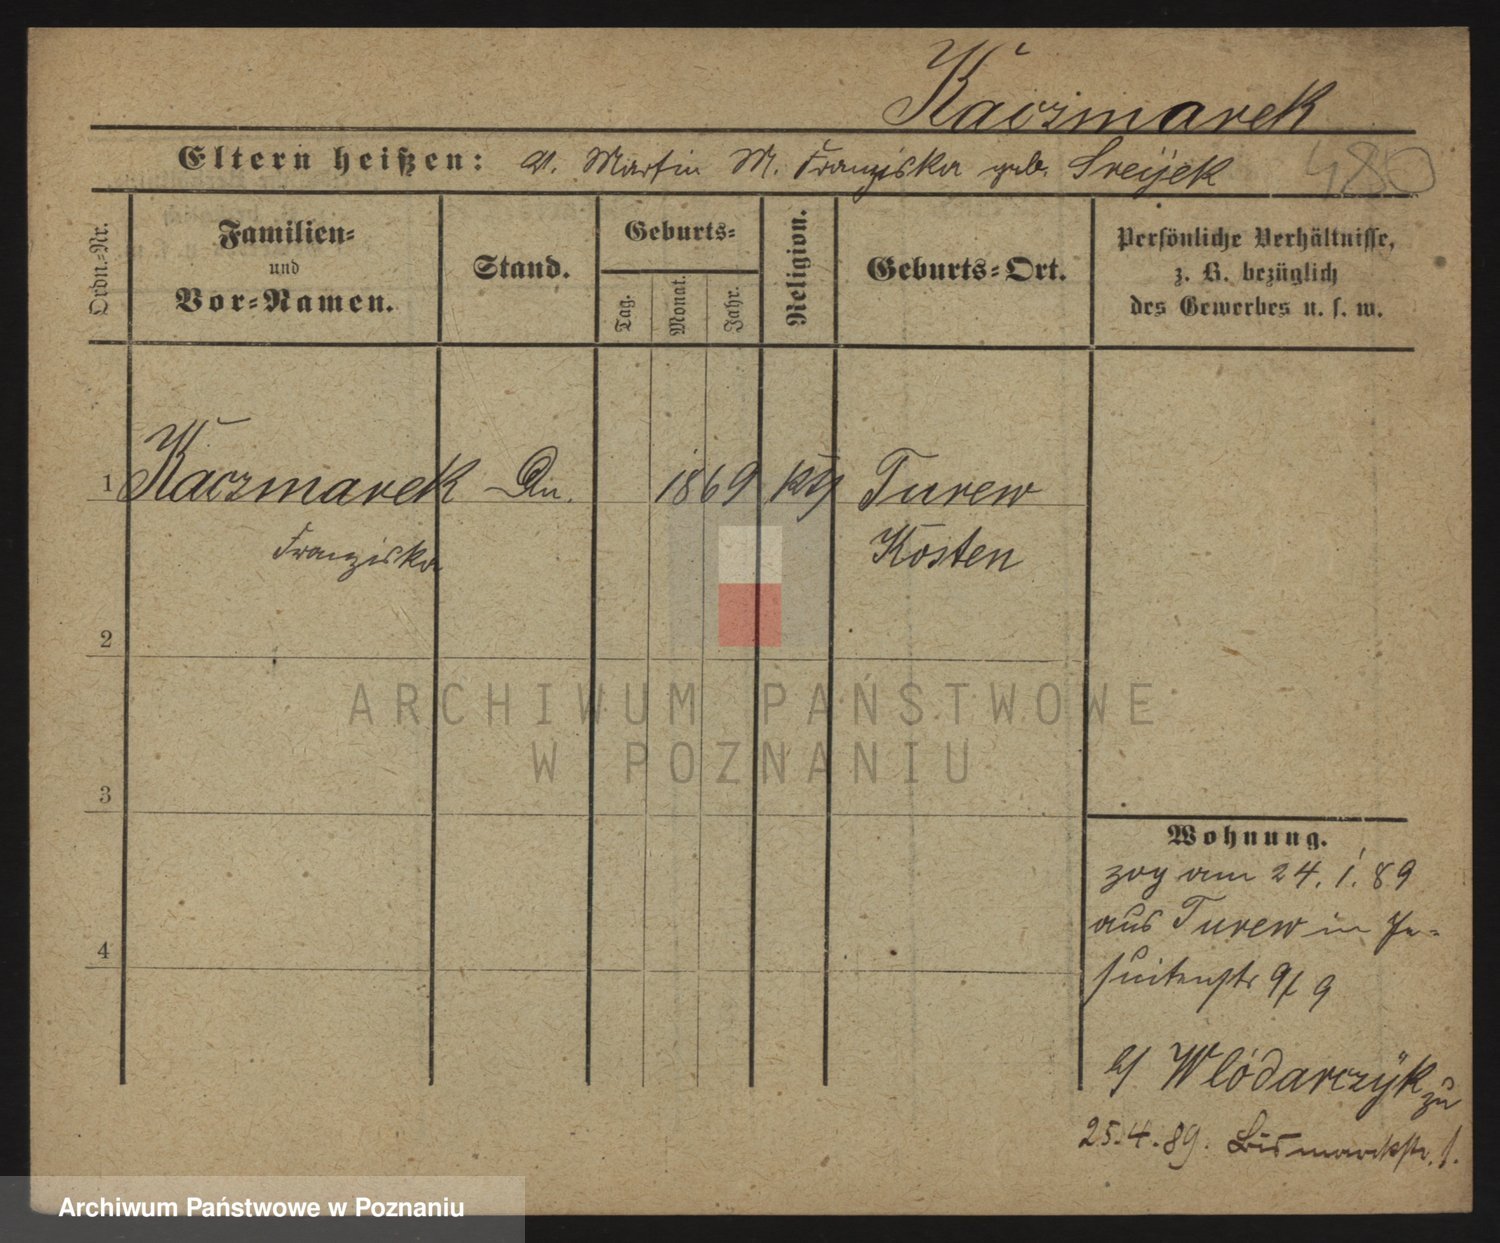 Kaczmarek
Eltern heißen: V. Martin M. Franziska geb. Sreijek
480
Ordn.-Nr.
Familien-
und
Vor-Namen.
Stand.
Geburts-
Tag.
Monat.
Jahr.
Religion.
Geburts-Ort.
Persönliche Verhältnisse,
z. B. bezüglich
des Gewerbes u. s. w.
1 Kaczmarek 1869 kth Turew
Franziska Kosten
2
3
4
Wohnung.
zog am 24.1.89
aus Turew in Je-
suitenstr 9/9
b/ Wlódarczÿk zu
25.4.89. Bismarckstr. 1.
ARCHIWUM PAŃSTWOWE
W POZNANIU
Archiwum Państwowe w Poznaniu